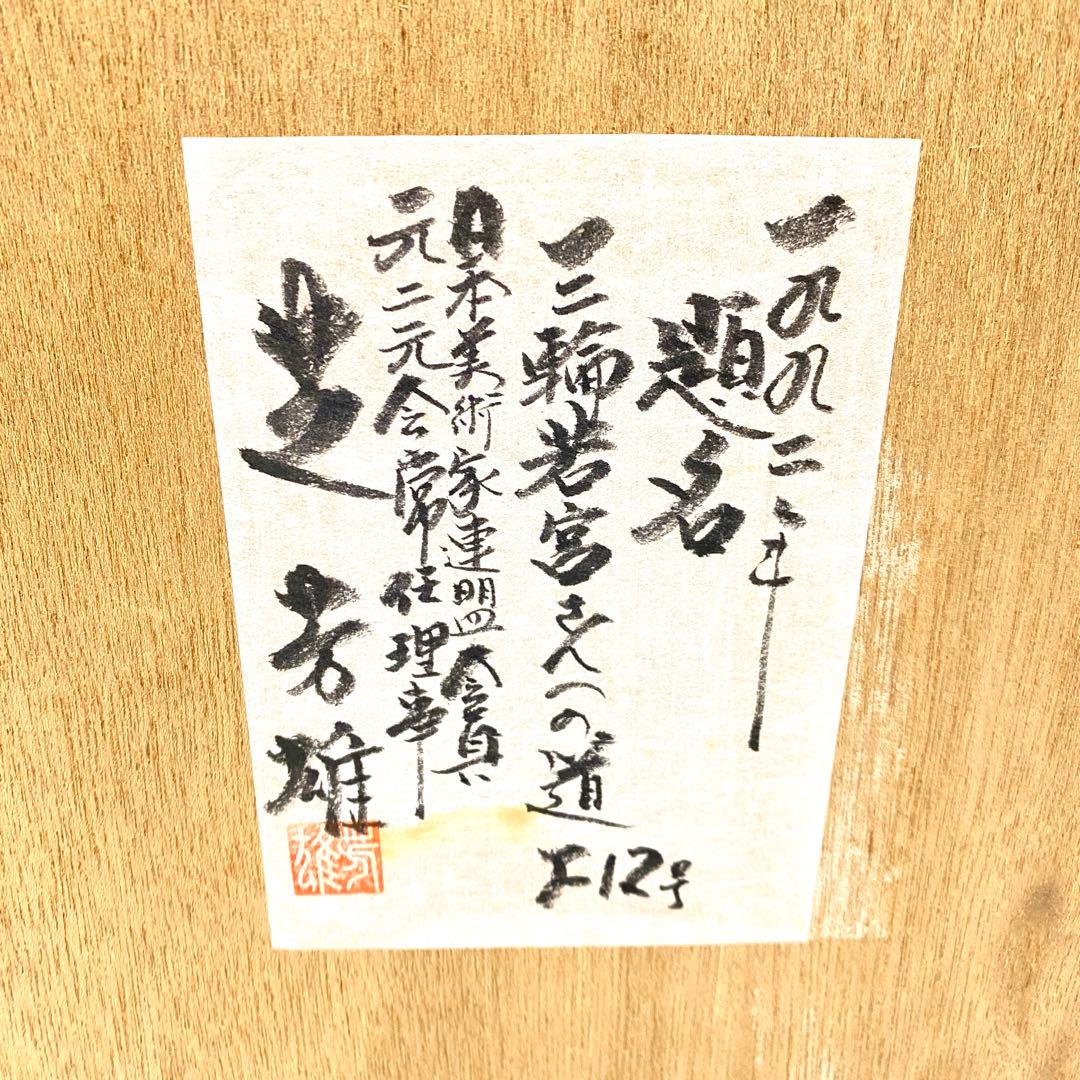 一九九二年
題名
三輪若宮さんへの道
F12号
日本美術家連盟会員
元二元会常任理事
芝芳雄
芳雄